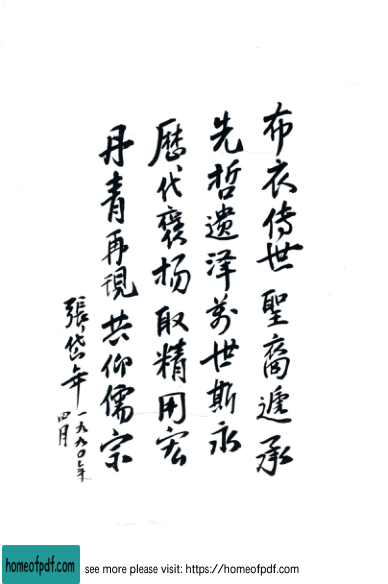 布衣傳世聖裔遞承
先哲遺澤萬世斯永
歷代褒扬取精用宏
丹青再現共仰儒宗
張岱年
一九九〇年
四月
homeofpdf.com
see more please visit: https://homeofpdf.com